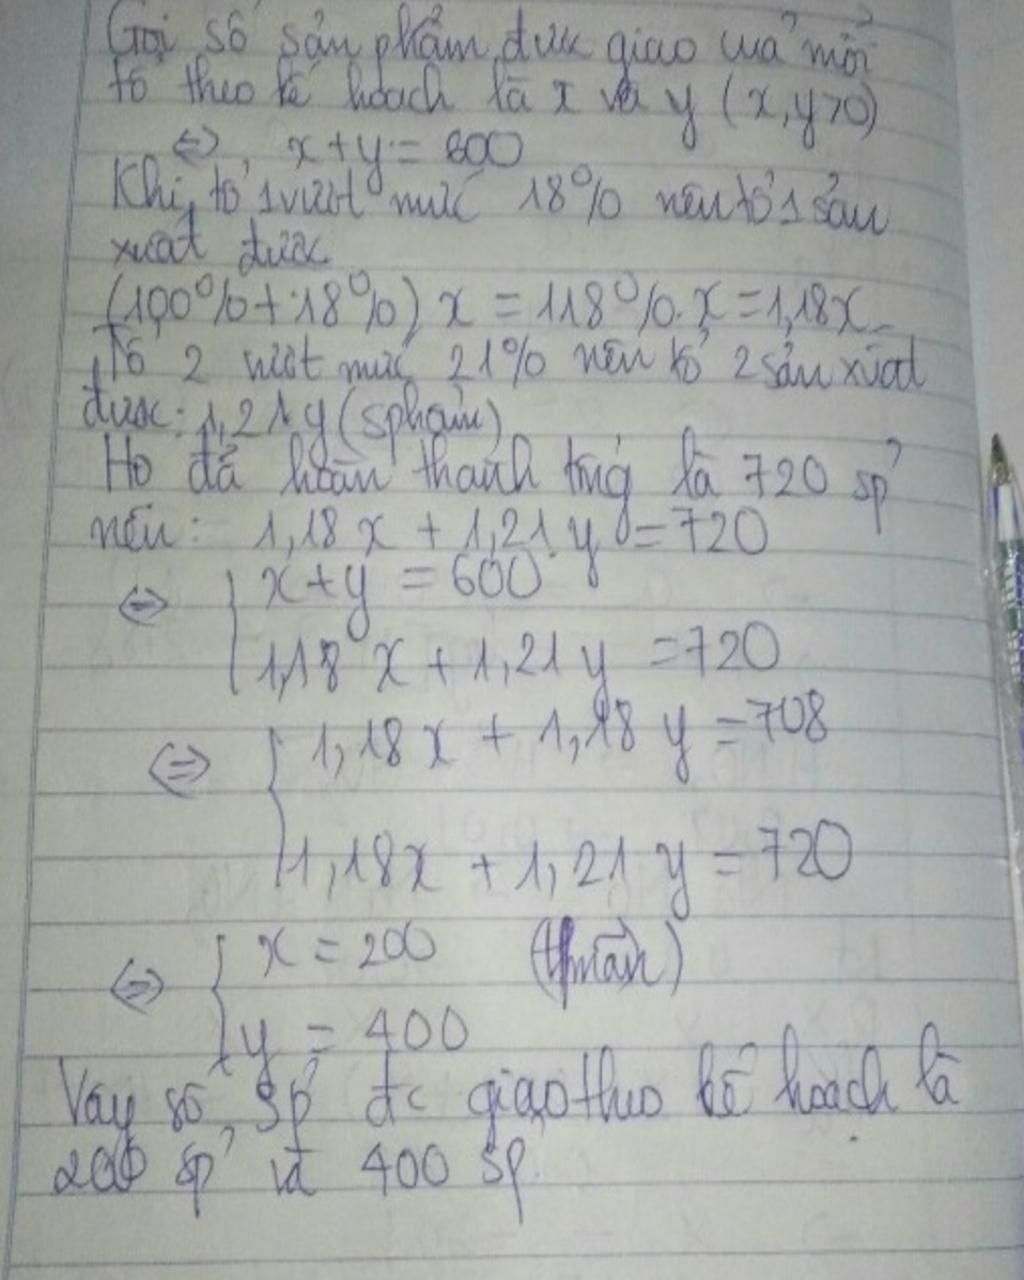 Gọi số sản phẩm được giao của mỗi
tổ theo kế hoạch là x và y (x,y>0)
⇔ x+y = 600
Khi tổ 1 vượt mức 18% nên tổ 1 sản
xuất được
(100%+18%) x = 118%.x = 1,18x
Tổ 2 vượt mức 21% nên tổ 2 sản xuất
được: 1,21y (sphẩm)
Họ đã hoàn thành là 720 sp
nên: 1,18x + 1,21y = 720
⇔ { x+y = 600
1,18x + 1,21y = 720
⇔ { 1,18x + 1,18y = 708
1,18x + 1,21y = 720
⇔ { x = 200 (tmãn)
y = 400
Vậy số sp đc giao theo kế hoạch là
200 sp và 400 sp.